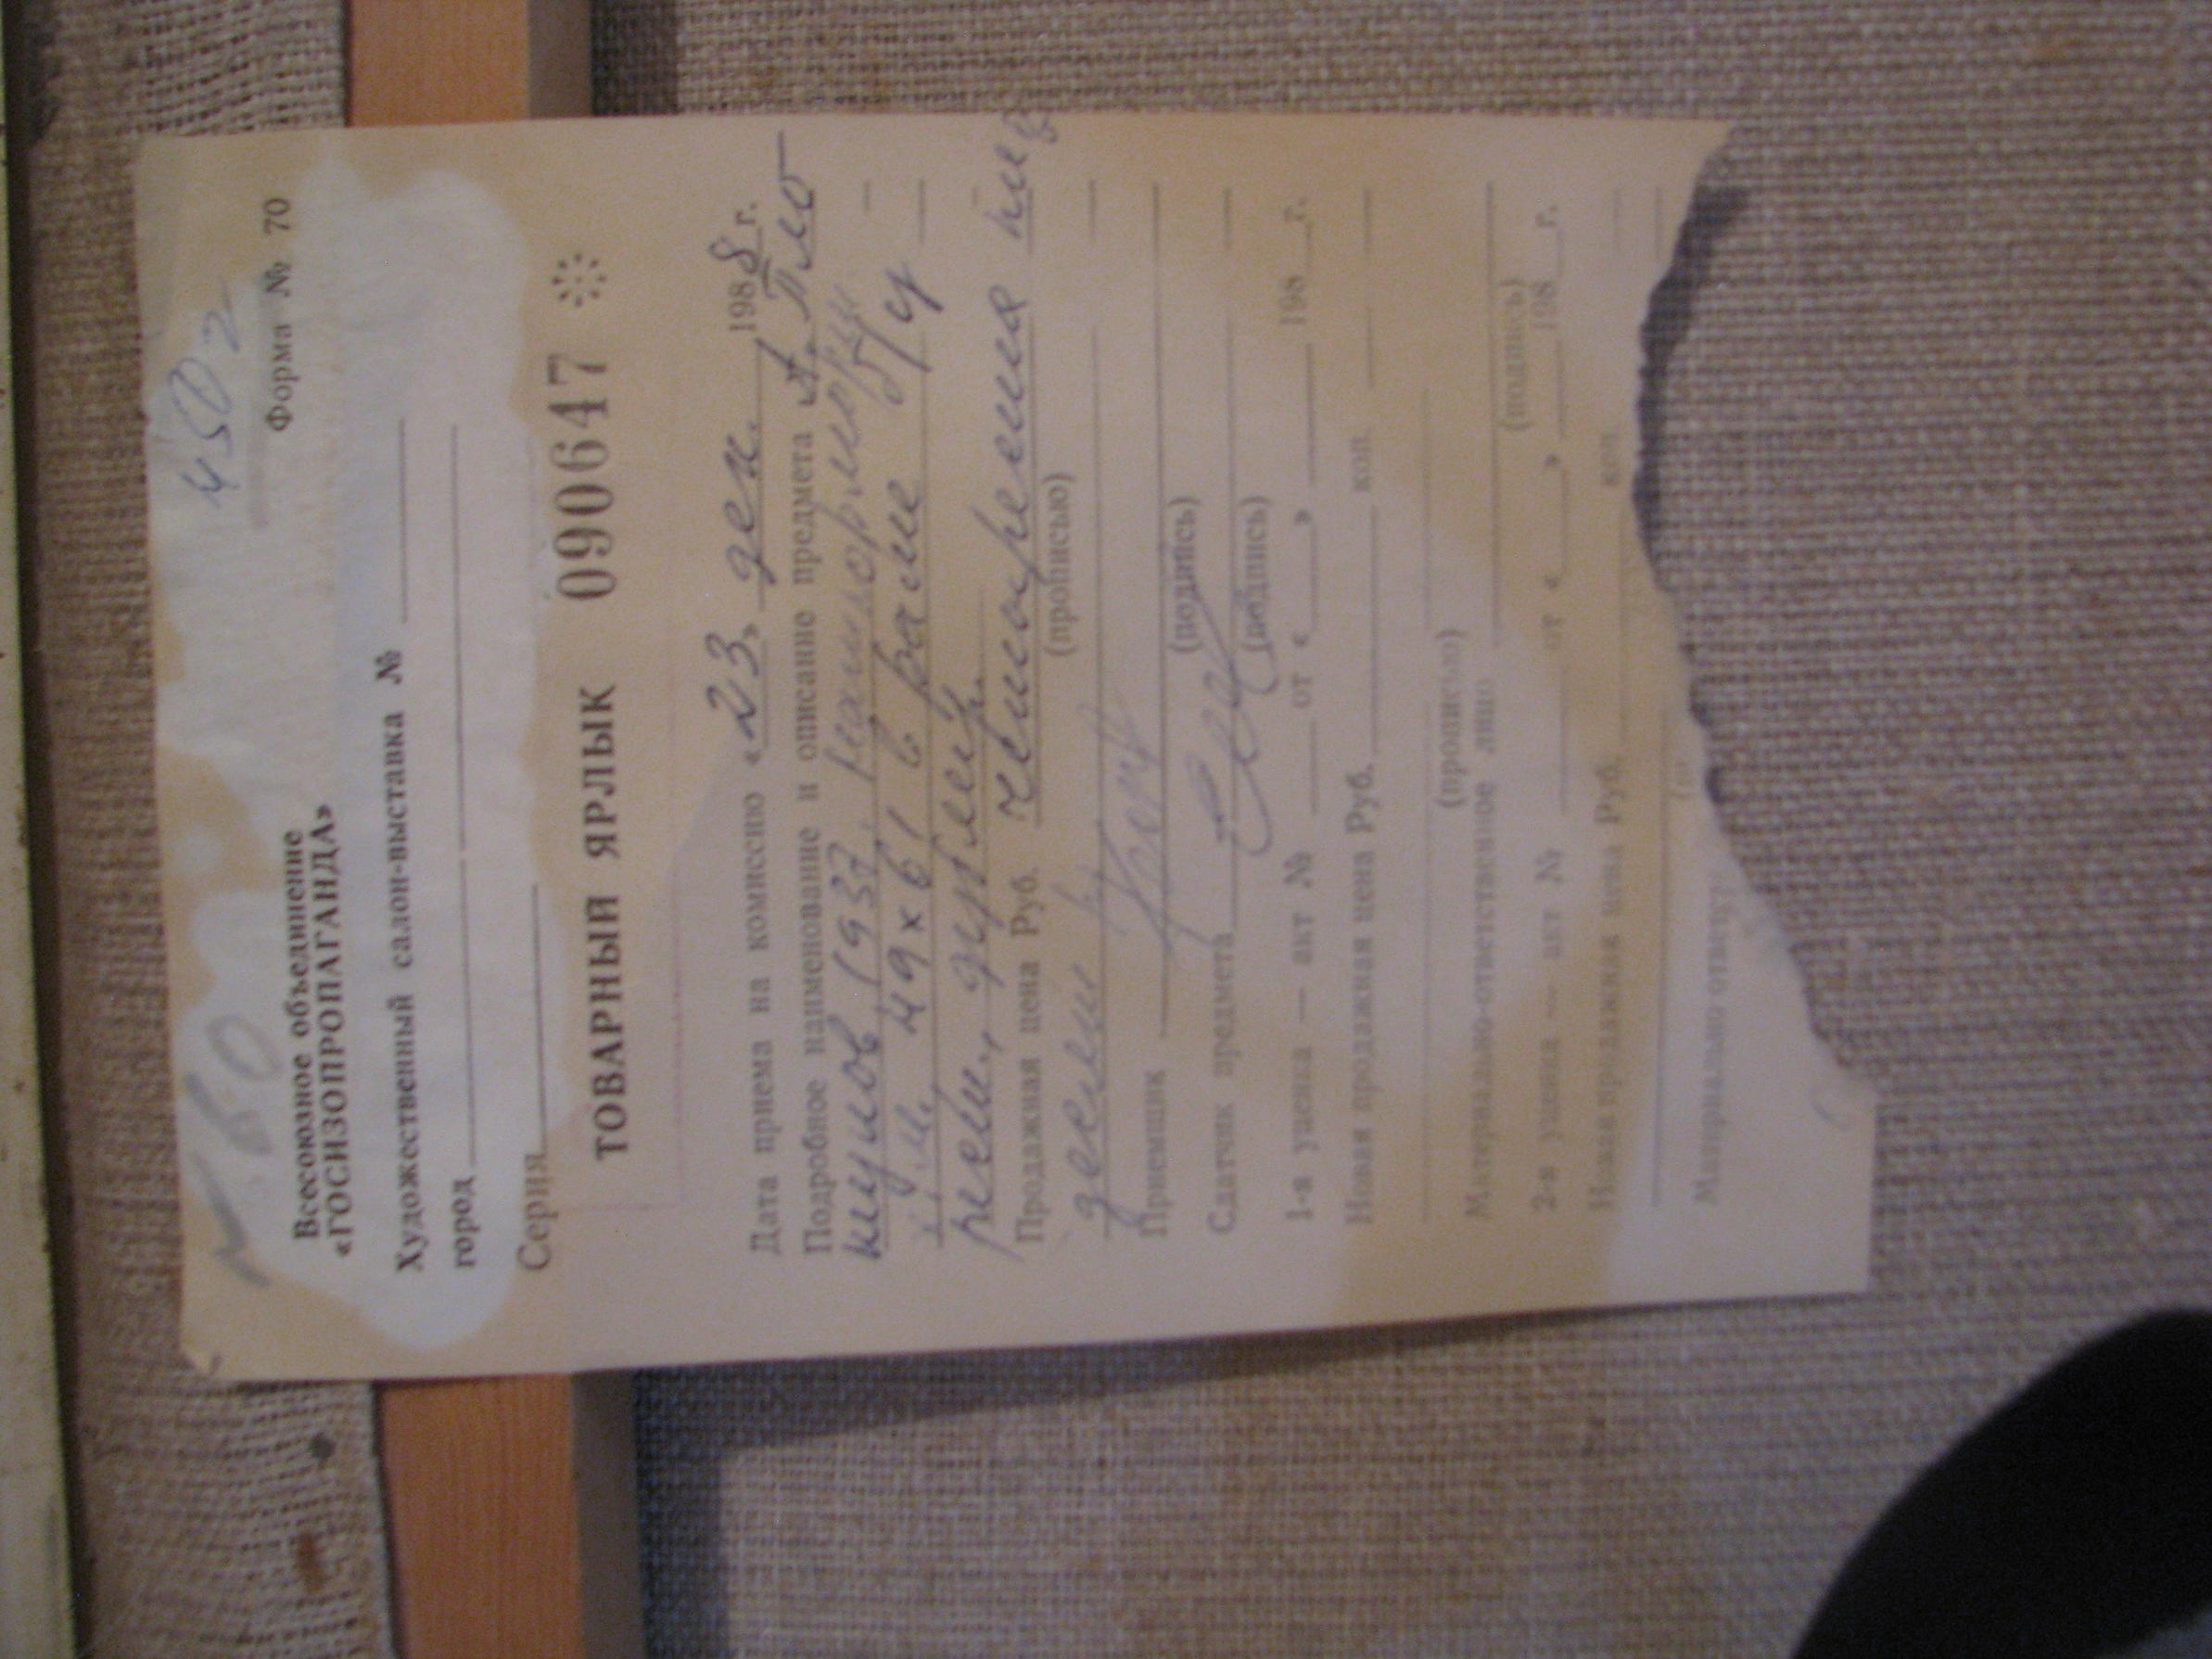 450 г
Форма № 70
Всесоюзное объединение
«ГОСИЗОПРОПАГАНДА»
Художественный салон-выставка №
город
Серия
ТОВАРНЫЙ ЯРЛЫК 090647
Дата приема на комиссию «23» дек. 1988 г.
Подробное наименование и описание предмета А. Пло
(1937, натюрморт
х/м, 49х61 в раме б/у
дублир.
Продажная цена Руб. четыреста пят
десят (прописью)
Приемщик
(подпись)
Сдатчик предмета
(подпись)
1-я уценка — акт № от « » 198 г.
Новая продажная цена Руб. коп.
(прописью)
Материально-ответственное лицо
(подпись)
2-я уценка — акт № от « » 198 г.
Новая продажная цена Руб. коп
Материально ответ